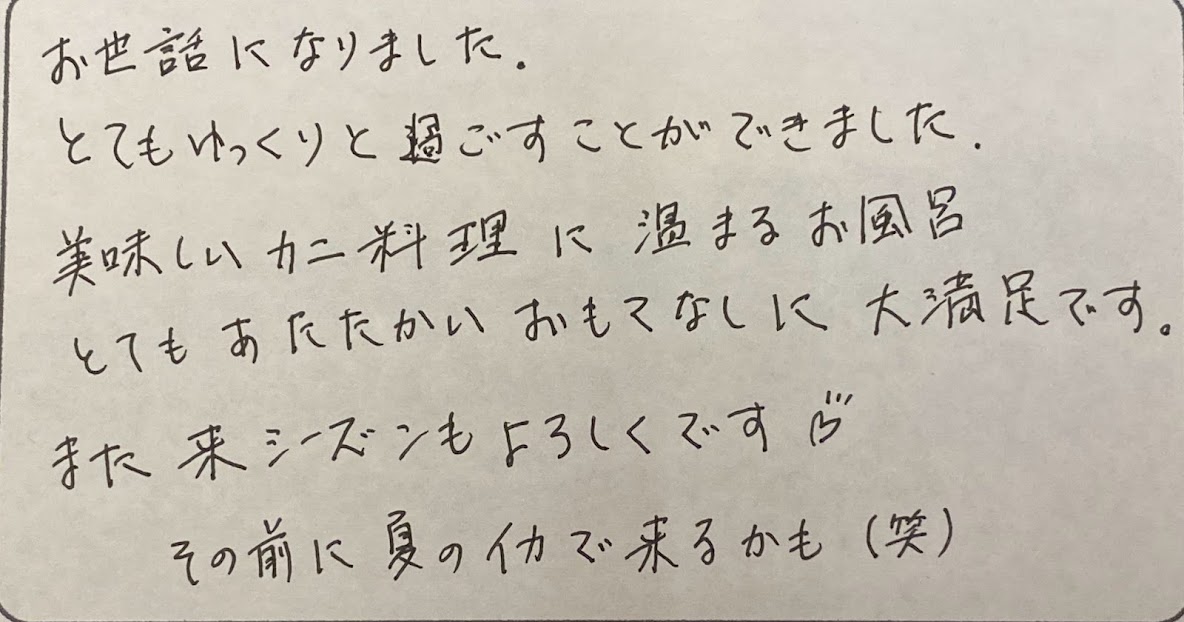 お世話になりました.
とてもゆっくりと過ごすことができました.
美味しいカニ料理に温まるお風呂
とてもあたたかいおもてなしに大満足です。
また来シーズンもよろしくです
その前に夏のイカで来るかも(笑)